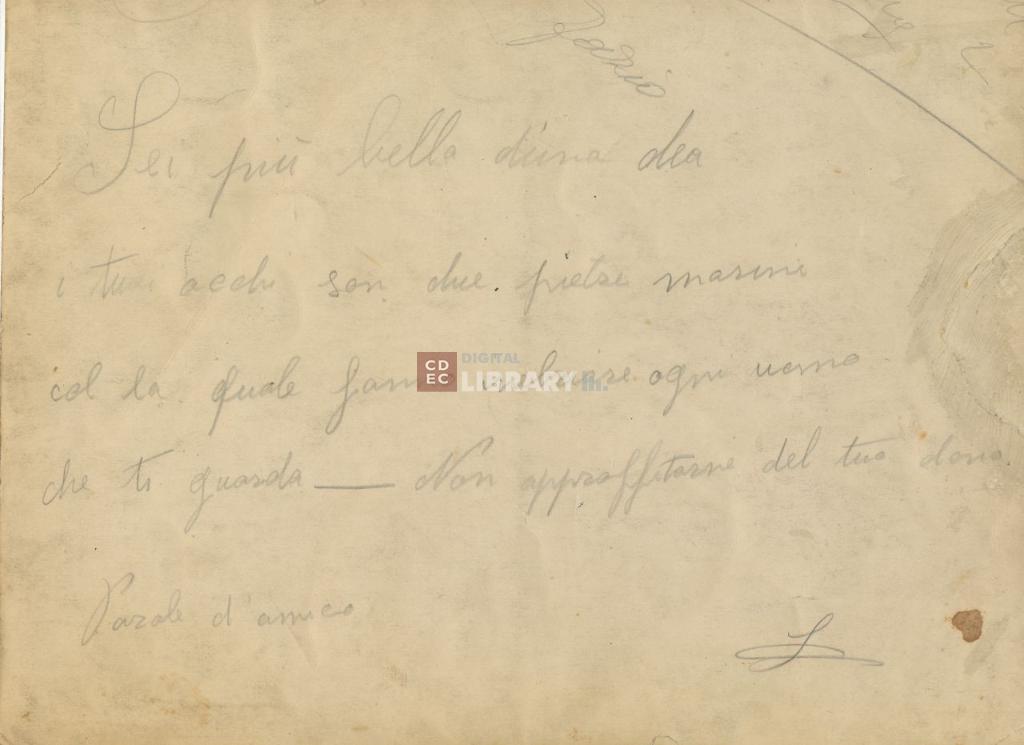 Sei più bella d'una dea
i tuoi occhi son due pietre marine
col la quale fanno ogni uomo
che ti guarda — Non approffitarne del tuo dono
Parole d'amico
L
CDEC DIGITAL LIBRARY